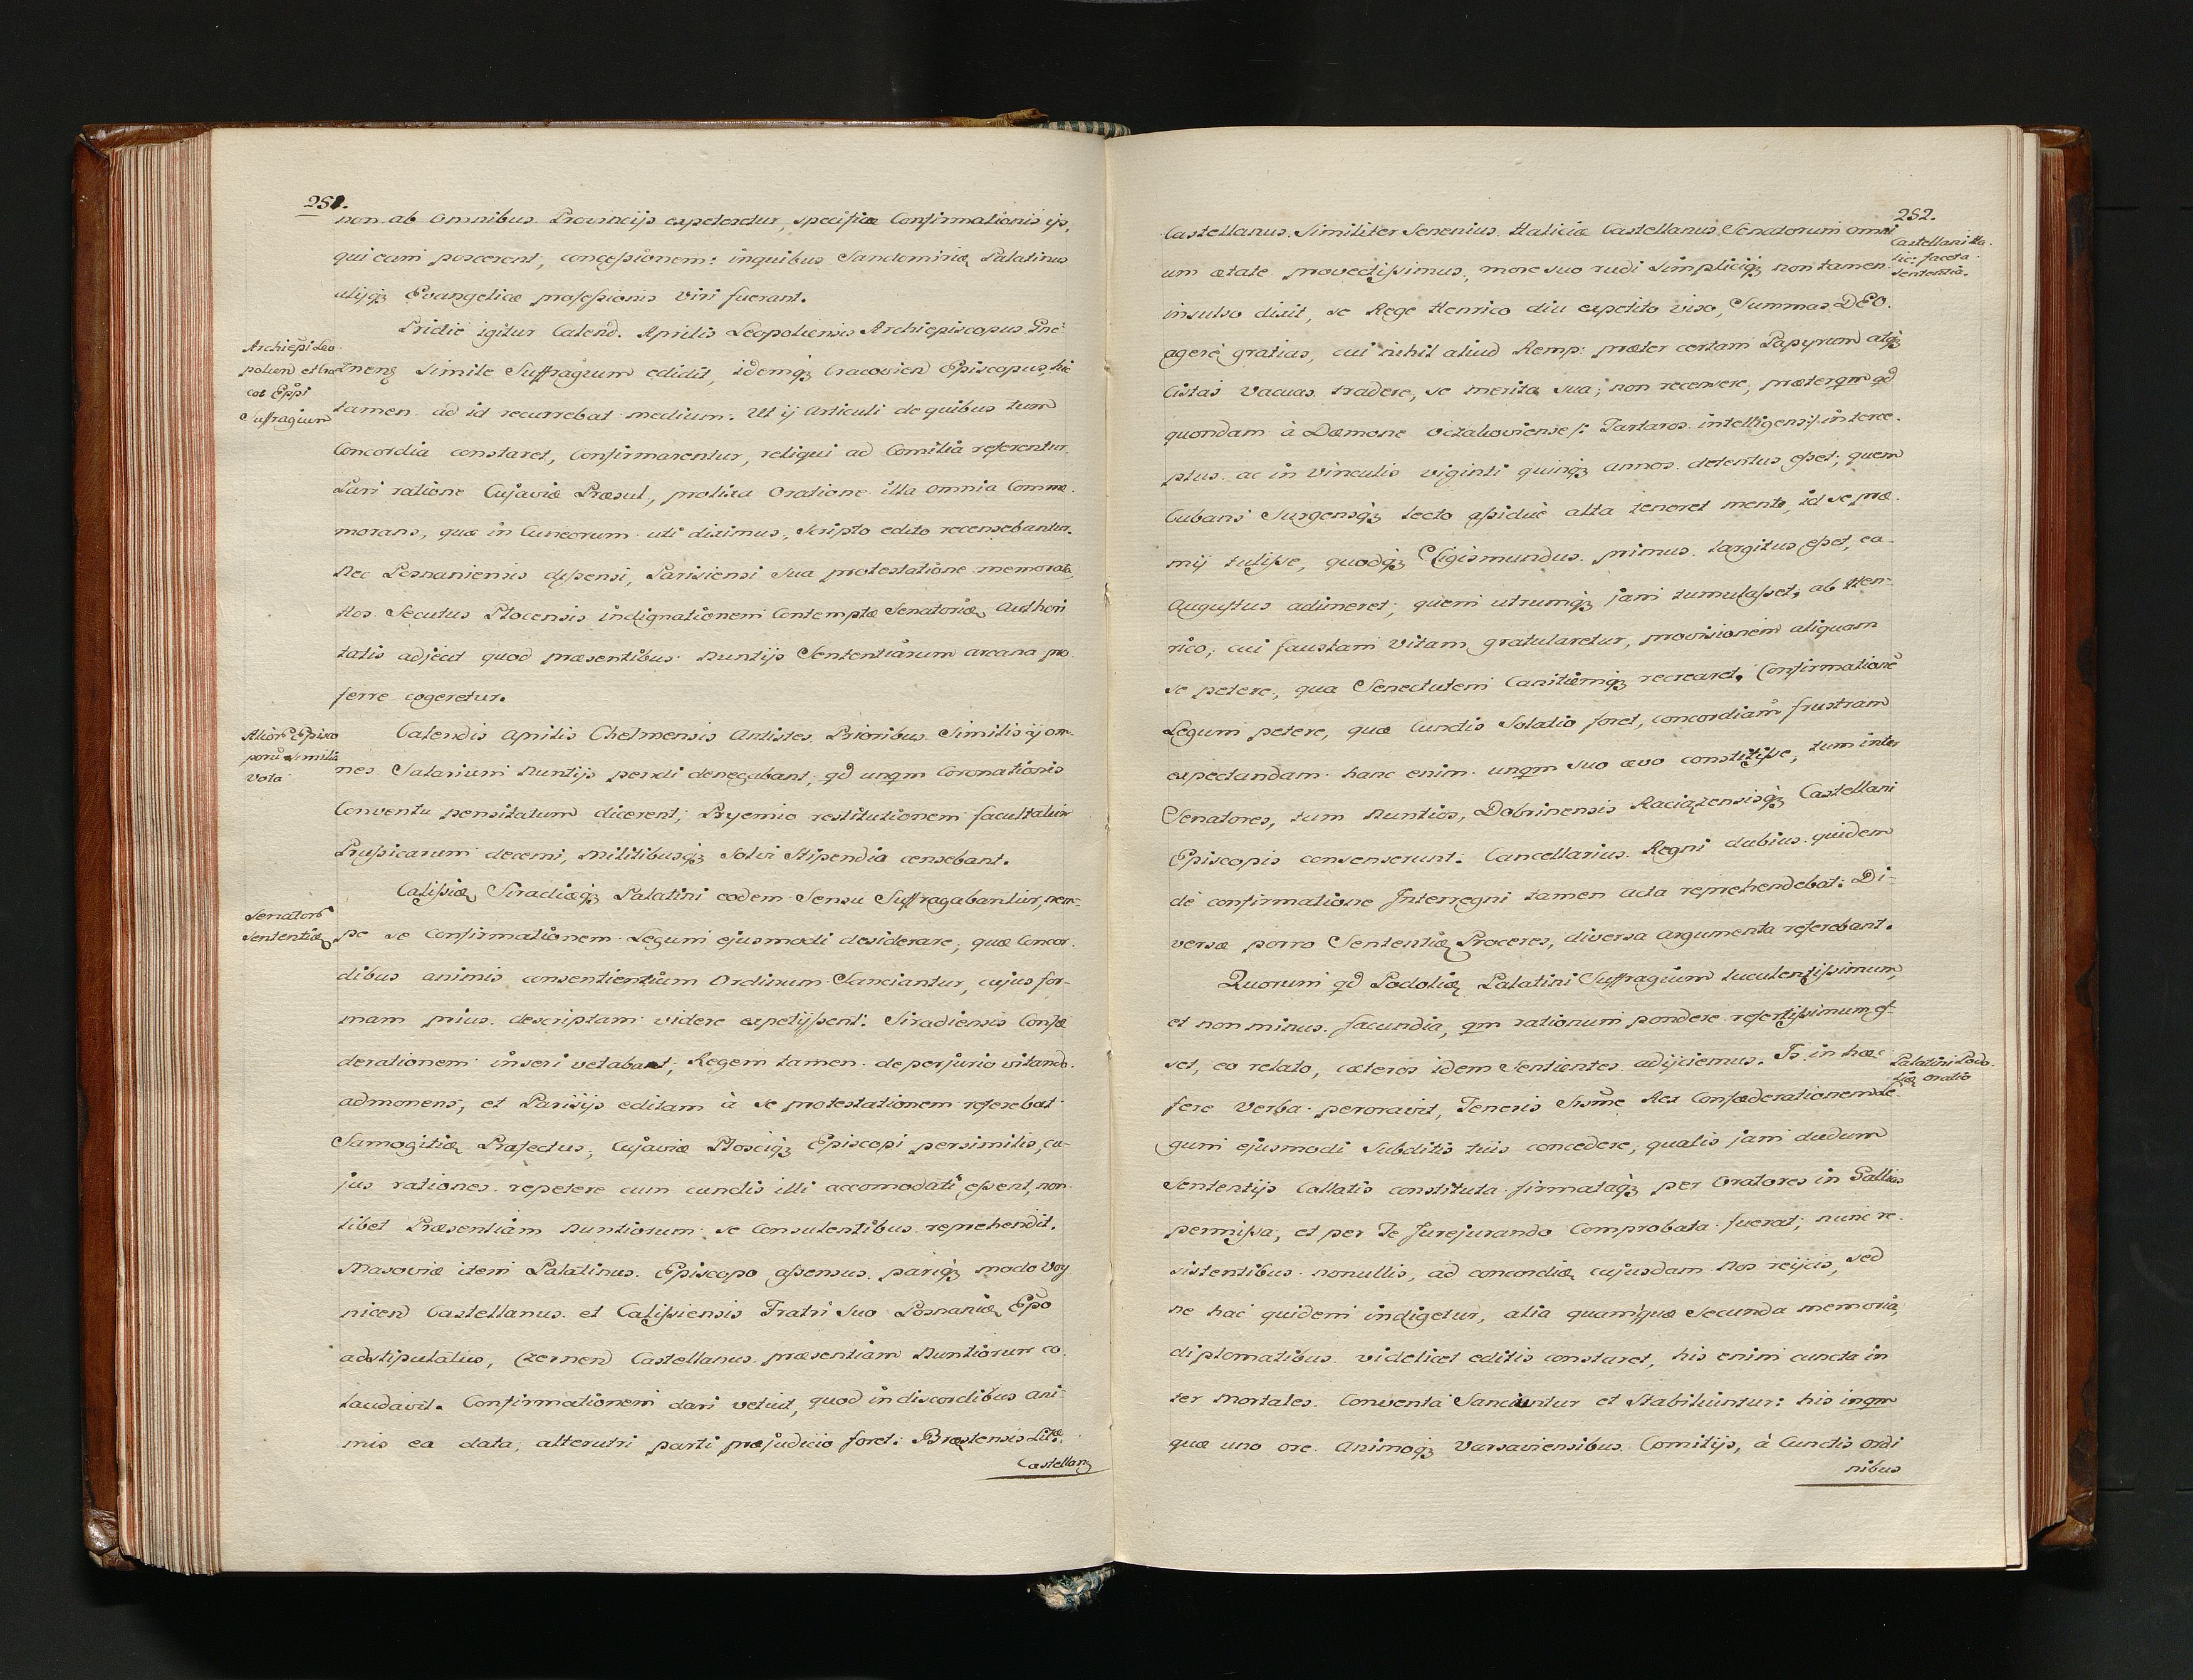 251.
non ab Omnibus Provincijs expeteretur, specifica Confirmationis ijs,
qui eam poscerent, concessionem: in quibus Sandomiriæ Palatinus
alijq3 Evangelicæ professionis Viri fuerant.
Pridie igitur Calend. Aprilis Leopoliensis Archiepiscopus Gne-
Archiepi Leo
polien et Cra
cov Eppi
Suffragium
znens simile Suffragium edidit, idemq3 Cracovien Episcopus, hic
tamen ad id recurrebat medium: Ut ij Articuli de quibus tum
Concordia constaret, Confirmarentur, reliqui ad Comitia referentur.
Pari ratione Cujaviæ Præsul, prolixa Oratione illa omnia Comme-
morans, quæ in Cuneorum uti diximus, Scripto edito recensebantur.
Nec Posnaniensis dissensi, Parisiensi sua protestatione memorata,
Hos Secutus Plocensis indignationem Contemptæ Senatoriæ Authori
tatis adjecit quod præsentibus Nuntijs Sententiarum arcana pro
ferre cogeretur.
Alior Episco
porū similia
Vota
Calendis Aprilis Chelmensis Antistes Prioribus Similis ij om-
nes Salarium Nuntijs pendi denegabant, qd unqm Coronationis
Conventu pensitatum dicerent; Pryemio restitutionem facultatum
Prussicarum decerni, Militibusq3 Solvi Stipendia censebant.
Calissiæ Siradiæq3 Palatini eodem Sensu Suffragabantur, nem-
Senator
Sententiæ
pe se Confirmationem Legum ejusmodi desiderare, quæ Concor-
dibus animis consentientium Ordinum Sanciantur, cujus for-
mam prius descriptam videre expetijssent: Siradiensis Confœ
derationem inseri vetabat; Regem tamen de perjurio vitando
admonens, et Parisijs editam à se protestationem referebat
Samogitiæ Præfectus, Cujaviæ Plosciq3 Episcopi persimilis, cu-
jus rationes repetere cum cunctis illi accomodati essent, non
libet Præsentiam Nuntiorum se Consulentibus reprehendit.
Masoviæ item Palatinus Episcopo assensus, pariq3 modo Voy
nicen Castellanus et Calissiensis Fratri suo Posnaniæ Epo
adstipulatus, Czernen Castellanus præsentiam Nuntiorum co-
laudavit. Confirmationem dari vetuit, quod in discordibus ani-
mis ea data, alterutri parti præjudicio foret: Bræstensis Litæ.
Castellan9
252.
Castellanus. Similiter Senenius Haliciæ Castellanus Senatorum omni
Castellani Ha-
lic: faceta
Sententia.
um ætate provectissimus, more suo rudi Simpliciq3 non tamen
insulso dixit, se Rege Henrico diu expetito viso, Summas DEO
agere gratias, cui nihil aliud Remp: præter certam Papyrum atq3
Cistas Vacuas tradere, se merita sua; non recensere, præterqm qd
quondam à Dæmone Oczahoviense /: Tartaros intelligens:/ interce-
ptus ac in Vinculis viginti quinq3 annos detentus esset; quem
Cubans Surgensq3 lecto assidue alta teneret mente, id se præ-
mij tulisse, quodq3 Sigismundus primus largitus esset, ea
Augustus adimeret; quem utrumq3 jam tumulasset, ab Hen-
rico, cui faustam Vitam gratularetur, provisionem aliquam
se petere, qua Senectutem Canitiemq3 recrearet, Confirmationē
Legum petere, quæ Cunctis Solatio foret, concordiam frustram
expectandam hanc enim unqm suo ævo constitisse, tum inter
Senatores, tum Nuntios, Dobrinensis Raciązensisq3 Castellani
Episcopis consenserunt: Cancellarius Regni dubius quidem
de confirmatione Interregni tamen acta reprehendebat: Di-
versæ porro Sententiæ Proceres, diversa argumenta referebant.
Quorum qd Podoliæ Palatini Suffragium luculentissimum,
et non minus facundia, qm rationum pondere refertissimum es-
set, eo relato, cæteros idem Sentientes adijciemus. Is in hæc
Palatini Podo-
liæ Oratio
fere Verba peroravit, Teneris Srsme Rex Confœderationem Le
gum ejusmodi Subditis tuis concedere, qualis jam dudum
Sententijs Collatis constituta firmataq3 per Oratores in Gallias
permissa, et per Te Jurejurando Comprobata fuerat; nunc re-
sistentibus nonullis, ad concordiæ cujusdam Nos reijcis, sed
ne hac quidem indigetur, alia quamquæ secunda memoria,
diplomatibus videlicet editis constaret, his enim cuncta in
ter Mortales Conventa Sanciuntur et Stabiliuntur: his inqm
quæ uno ore Animoq3 Varsaviensibus Comitijs, à Cunctis ordi
nibus